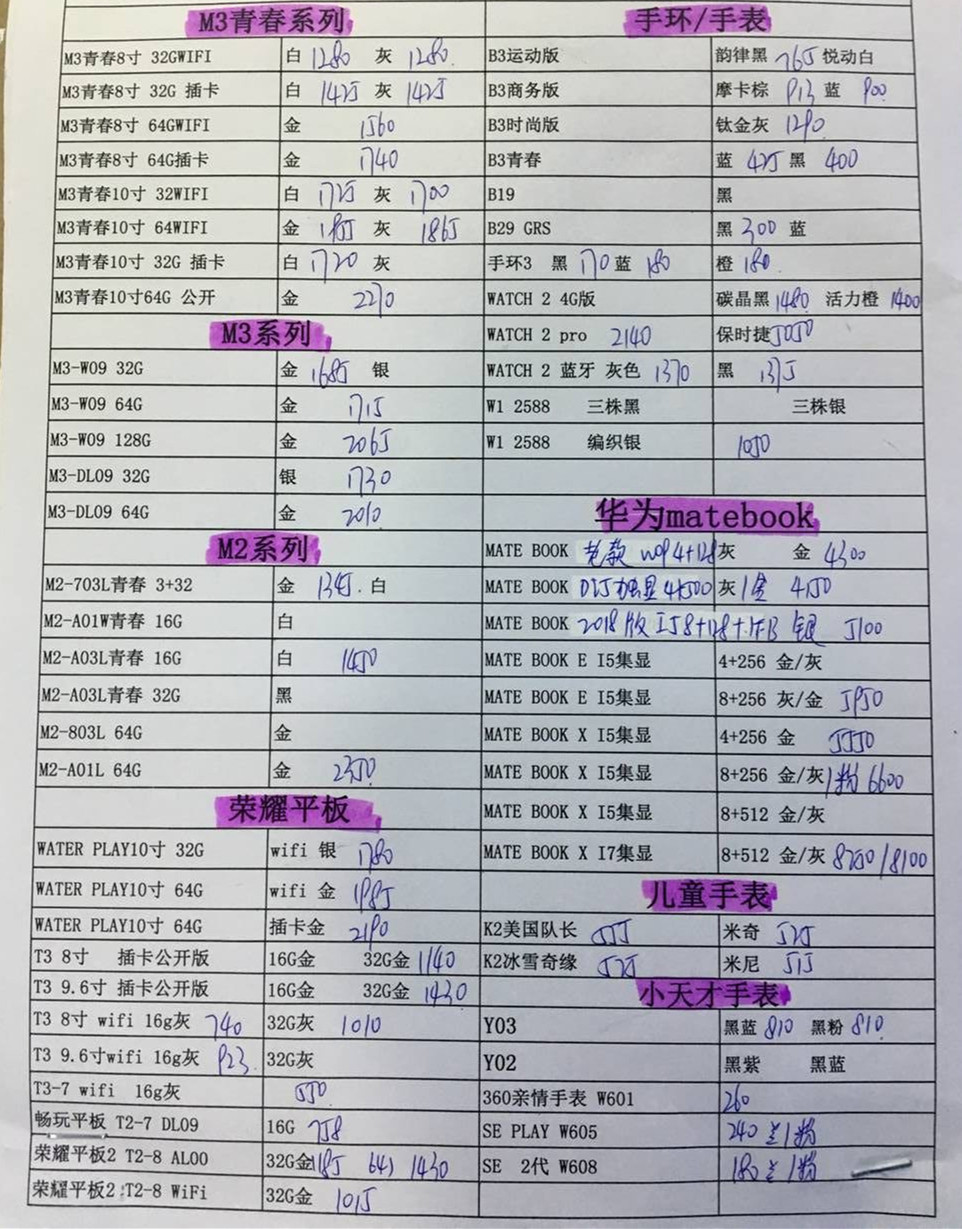 M3青春系列
M3青春8寸 32GWIFI 白 1280 灰 1280
M3青春8寸 32G 插卡 白 1425 灰 1425
M3青春8寸 64GWIFI 金 1560
M3青春8寸 64G插卡 金 1740
M3青春10寸 32WIFI 白 1725 灰 1700
M3青春10寸 64WIFI 金 灰 1865
M3青春10寸 32G 插卡 白 1720 灰
M3青春10寸64G 公开 金 2270
M3系列
M3-W09 32G 金 1685 银
M3-W09 64G 金 1715
M3-W09 128G 金 2065
M3-DL09 32G 银 1730
M3-DL09 64G 金 2010
M2系列
M2-703L青春 3+32 金 1345. 白
M2-A01W青春 16G 白
M2-A03L青春 16G 白 1450
M2-A03L青春 32G 黑
M2-803L 64G 金
M2-A01L 64G 金 2350
荣耀平板
WATER PLAY10寸 32G wifi 银 1780
WATER PLAY10寸 64G wifi 金 1985
WATER PLAY10寸 64G 插卡金 2190
T3 8寸 插卡公开版 16G金 32G金 1140
T3 9.6寸 插卡公开版 16G金 32G金 1430
T3 8寸 wifi 16g灰 740 32G灰 1010
T3 9.6寸wifi 16g灰 923 32G灰
T3-7 wifi 16g灰 550
畅玩平板 T2-7 DL09 16G 758
荣耀平板2 T2-8 AL00 32G金 1185 1430
荣耀平板2 T2-8 WiFi 32G金 1015
手环/手表
B3运动版 韵律黑 765 悦动白
B3商务版 摩卡棕 913 蓝 900
B3时尚版 钛金灰 1290
B3青春 蓝 425 黑 400
B19 黑
B29 GRS 黑 300 蓝
手环3 黑 170 蓝 180 橙 180
WATCH 2 4G版 碳晶黑 1480 活力橙 1400
WATCH 2 pro 2140 保时捷 5050
WATCH 2 蓝牙 灰色 1370 黑 1375
W1 2588 三株黑 三株银
W1 2588 编织银 1050
华为matebook
MATE BOOK 老款 W09 4+128 灰 金 4300
MATE BOOK D15独显 4+500 灰/金 4150
MATE BOOK 2018版 I5 8+128+1TB 银 5100
MATE BOOK E I5集显 4+256 金/灰
MATE BOOK E I5集显 8+256 灰/金 5950
MATE BOOK X I5集显 4+256 金 5550
MATE BOOK X I5集显 8+256 金/灰/粉 6600
MATE BOOK X I5集显 8+512 金/灰
MATE BOOK X I7集显 8+512 金/灰 8250/8100
儿童手表
K2美国队长 555 米奇 525
K2冰雪奇缘 525 米尼 515
小天才手表
Y03 黑蓝 810 黑粉 810
Y02 黑紫 黑蓝
360亲情手表 W601 260
SE PLAY W605 240 兰/粉
SE 2代 W608 180 兰/粉